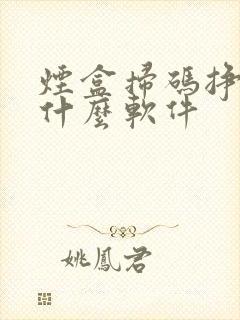 煙盒掃碼掙
什麼軟件
姚鳳君